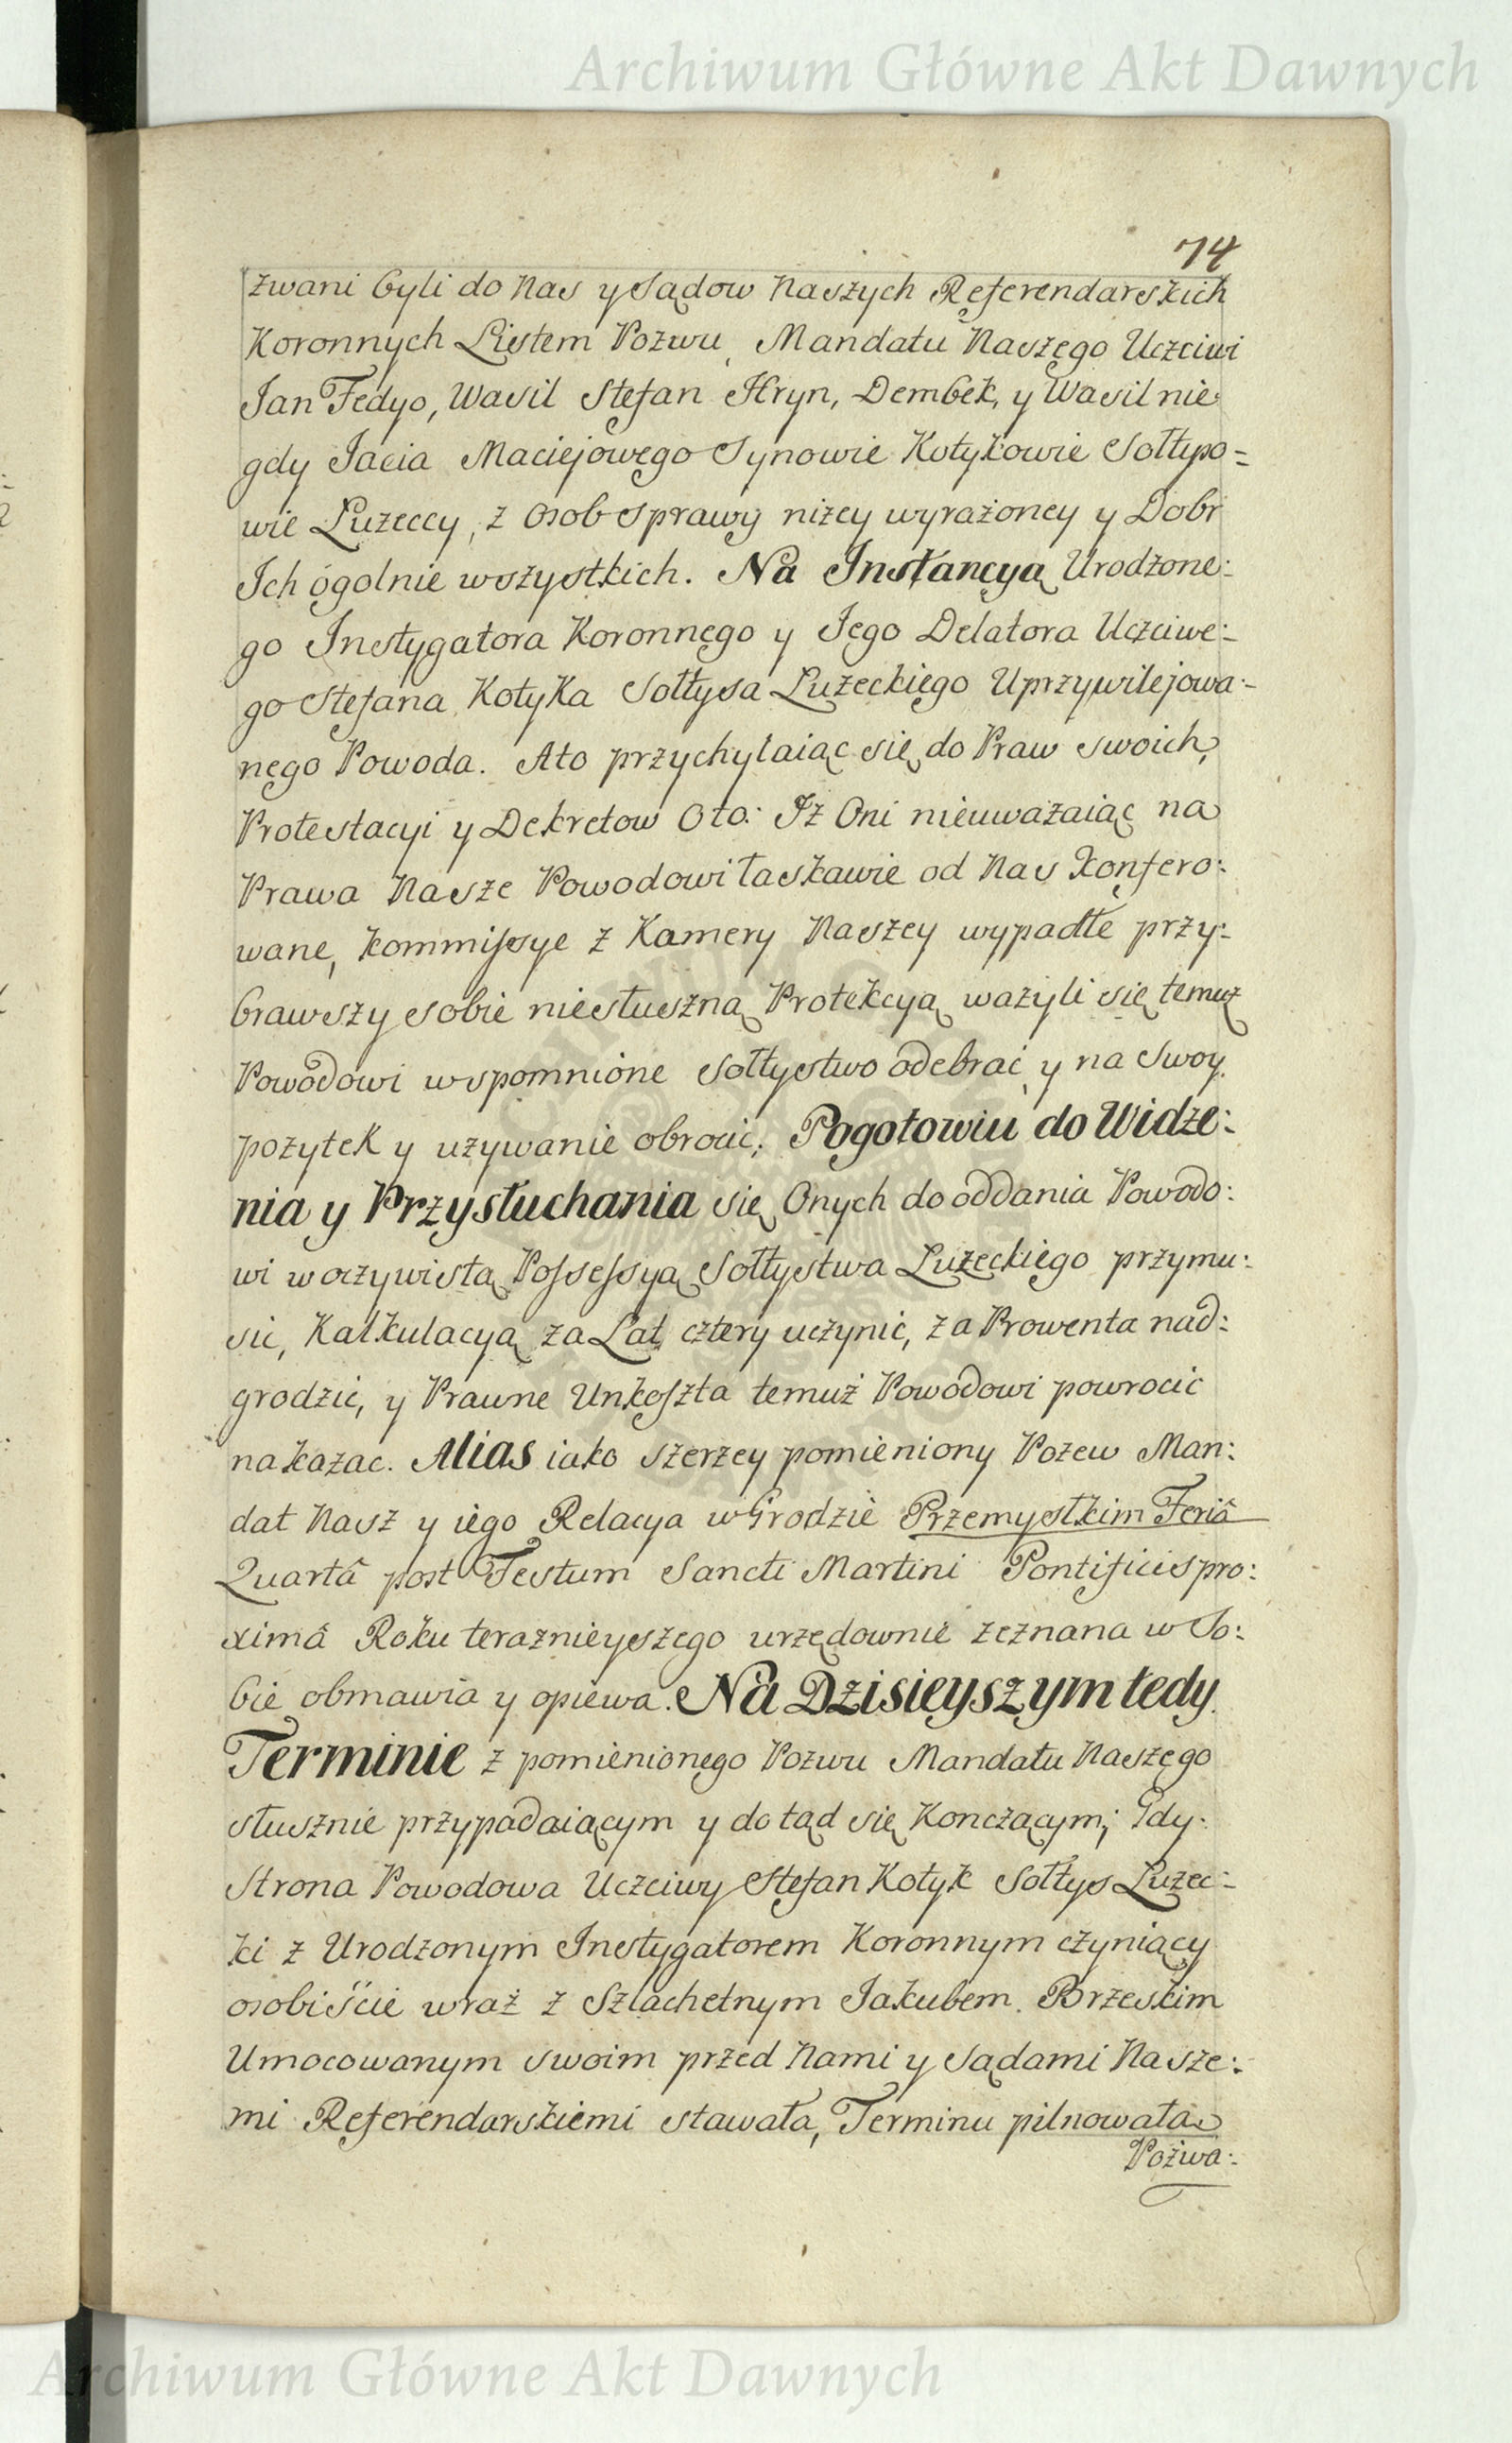 Archiwum Główne Akt Dawnych
74
zwani byli do Nas y Sądow Naszych Referendarskich
Koronnych Listem Pozwu, Mandatu Naszego Uczciwi
Jan Fedyo, Wasil Stefan Hryn, Dembek, y Wasil nie:
gdy Jacia Maciejowego Synowie Kotykowie Sołtyso=
wie Łuzeccy, z Osob Sprawy niżey wyrażoney y Dobr
Ich ogolnie wszystkich. Na Instancyą Urodzone:
go Instygatora Koronnego y Jego Delatora Uczciwe:
go Stefana Kotyka Sołtysa Łuzeckiego Uprzywilejowa:
nego Powoda. Ato przychylaiąc się do Praw swoich,
Protestacyi y Dekretow Oto: Iż Oni nieuważaiąc na
Prawa Nasze Powodowi łaskawie od Nas Konfero:
wane, kommissye z Kamery Naszey wypadłe przy:
brawszy sobie niesłuszną Protekcyą ważyli się temuż
Powodowi wspomnione Sołtystwo odebrać y na Swoy
pożytek y używanie obrocić; Pogotowiu do Widze:
nia y Przysłuchania się Onych do oddania Powodo:
wi w oczywistą Possessyą Sołtystwa Łuzeckiego przymu:
sić, Kalkulacyą za Lat cztery uczynić, za Prowenta nad:
grodzić, y Prawne Unkoszta temuż Powodowi powrocić
nakazać. Alias iako szerzey pomieniony Pozew Man:
dat Nasz y iego Relacya w Grodzie Przemyskim Feriâ
Quartâ post Festum Sancti Martini Pontificis pro:
ximâ Roku teraznieyszego urzędownie zeznana w So:
bie obmawia y opiewa. Na Dzisieyszym tedy
Terminie z pomienionego Pozwu Mandatu Naszego
słusznie przypadaiącym y do tąd się Konczącym; Gdy:
Strona Powodowa Uczciwy Stefan Kotyk Sołtys Łuzec:
ki z Urodzonym Instygatorem Koronnym czyniący
osobiście wraz z Szlachetnym Jakubem Brzeskim
Umocowanym swoim przed Nami y Sądami Nasze:
mi Referendarskiemi stawała, Terminu pilnowała
Pozwa:
Archiwum Główne Akt Dawnych